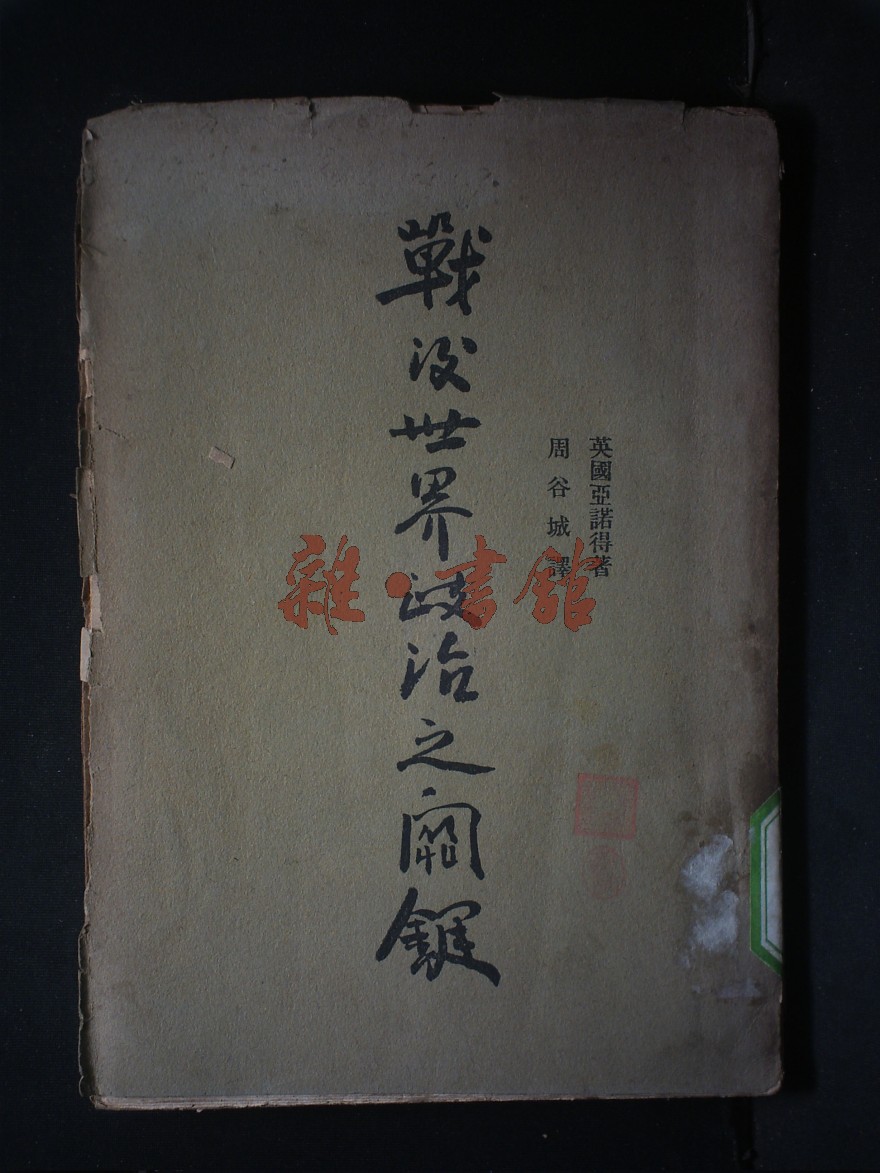 英國亞諾得著
周谷城譯
戰後世界政治之關鍵
雜·書館